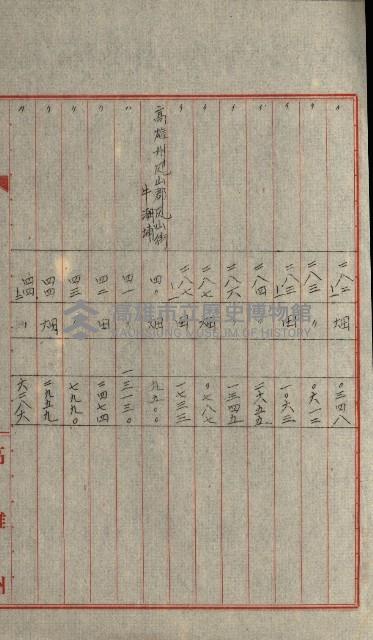 〃 二八二ノ一 畑 〇三四八
〃 二八三 〃 〇六一二
〃 二八三ノ一 田 一〇六三
〃 二八四 〃 二六五五
〃 二八六 〃 一三四五
〃 二八七 畑 〇七八七
〃 二八七ノ一 田 一七三三
高雄州鳳山郡鳳山街牛潮埔 四〇 畑 九五〇〇
〃 四一 〃 一三一三〇
〃 四二 田 二四七四
〃 四三 〃 七九九〇
〃 四四 畑 二九五九
〃 四四ノ一 〃 六二八六
高雄州
高雄市立歷史博物館
KAOHSIUNG MUSEUM OF HISTORY